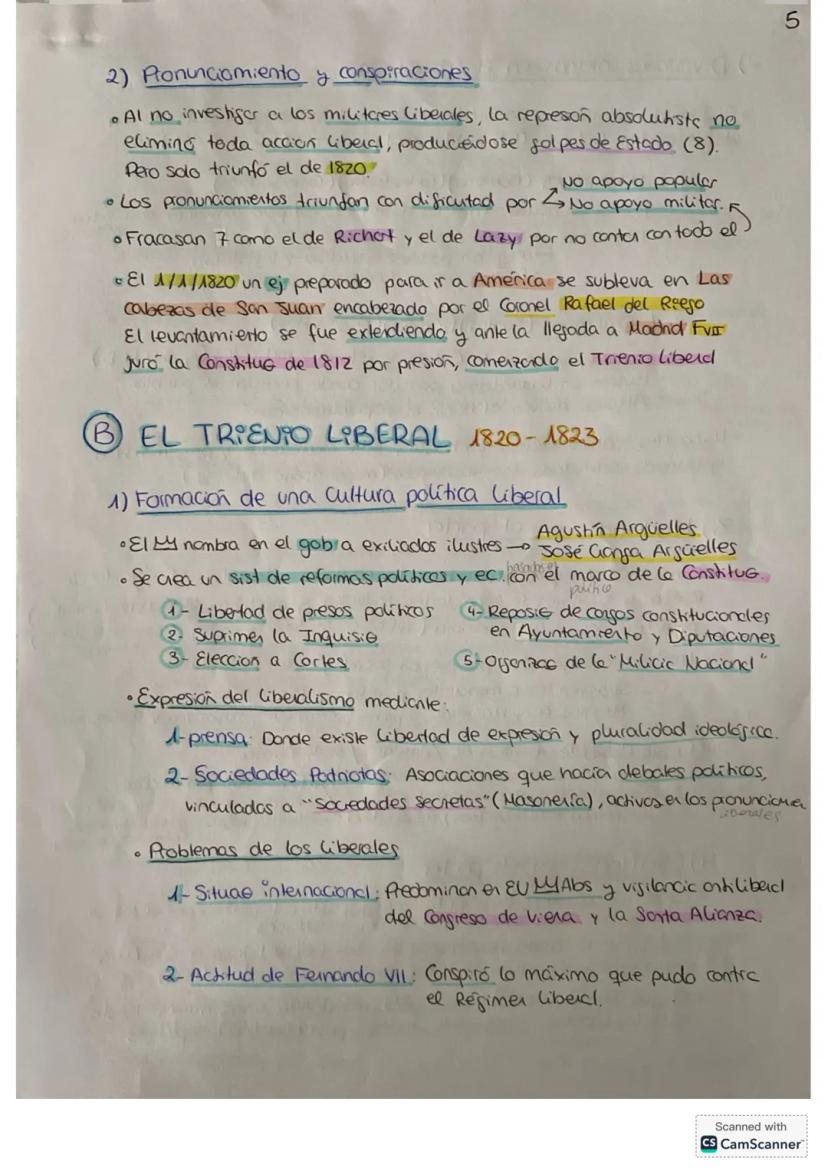 5
2) Pronunciamiento y conspiraciones
• Al no investigar a los militares liberales, la represoñ absolutista no
eliminó toda accion liberal, produciédose golpes de Estado (8).
Pero solo triunfó el de 1820.
• Los pronunciamientos triunfan con dificultad por → No apoyo popular
→ No apoyo militar.
• Fracasan 7 como el de Richart y el de Lazy por no contar con todo el
• El 1/1/1820 un ej preparado para ir a América se subleva en Las
cabezas de San Juan encabezado por el Coronel Rafael del Riego
El levantamiento se fue extendiendo y ante la llegada a Madrid FVII
juró la Constituc de 1812 por presión, comenzando el Trienio liberal
B EL TRIENIO LIBERAL 1820-1823
1) Formación de una cultura política liberal
• El nombra en el gob a exiliados ilustres → Agustín Argüelles
José Canga Argüelles
• Se crea un sist de reformas políticas y ec. con el marco de la Constituc.
1- Libertad de presos políticos
2- Suprimen la Inquisic
3- Eleccion a Cortes
4- Reposic de cargos constitucionales
en Ayuntamiento y Diputaciones
5- Organizac de la "Milicia Nacional"
• Expresión del liberalismo mediante:
1- prensa: Donde existe libertad de expresión y pluralidad ideológica.
2- Sociedades Patriotas: Asociaciones que hacía debates políticos,
vinculadas a "Sociedades secretas" (Masonería), activos en los pronunciamien
liberales
• Problemas de los liberales
1- Situac internacional: Predominan en EU Abs y vigilancia antiliberal
del Congreso de Viena y la Santa Alianza.
2- Actitud de Fernando VII: Conspiró lo máximo que pudo contra
el Régimen liberal.
Scanned with
CS CamScanner